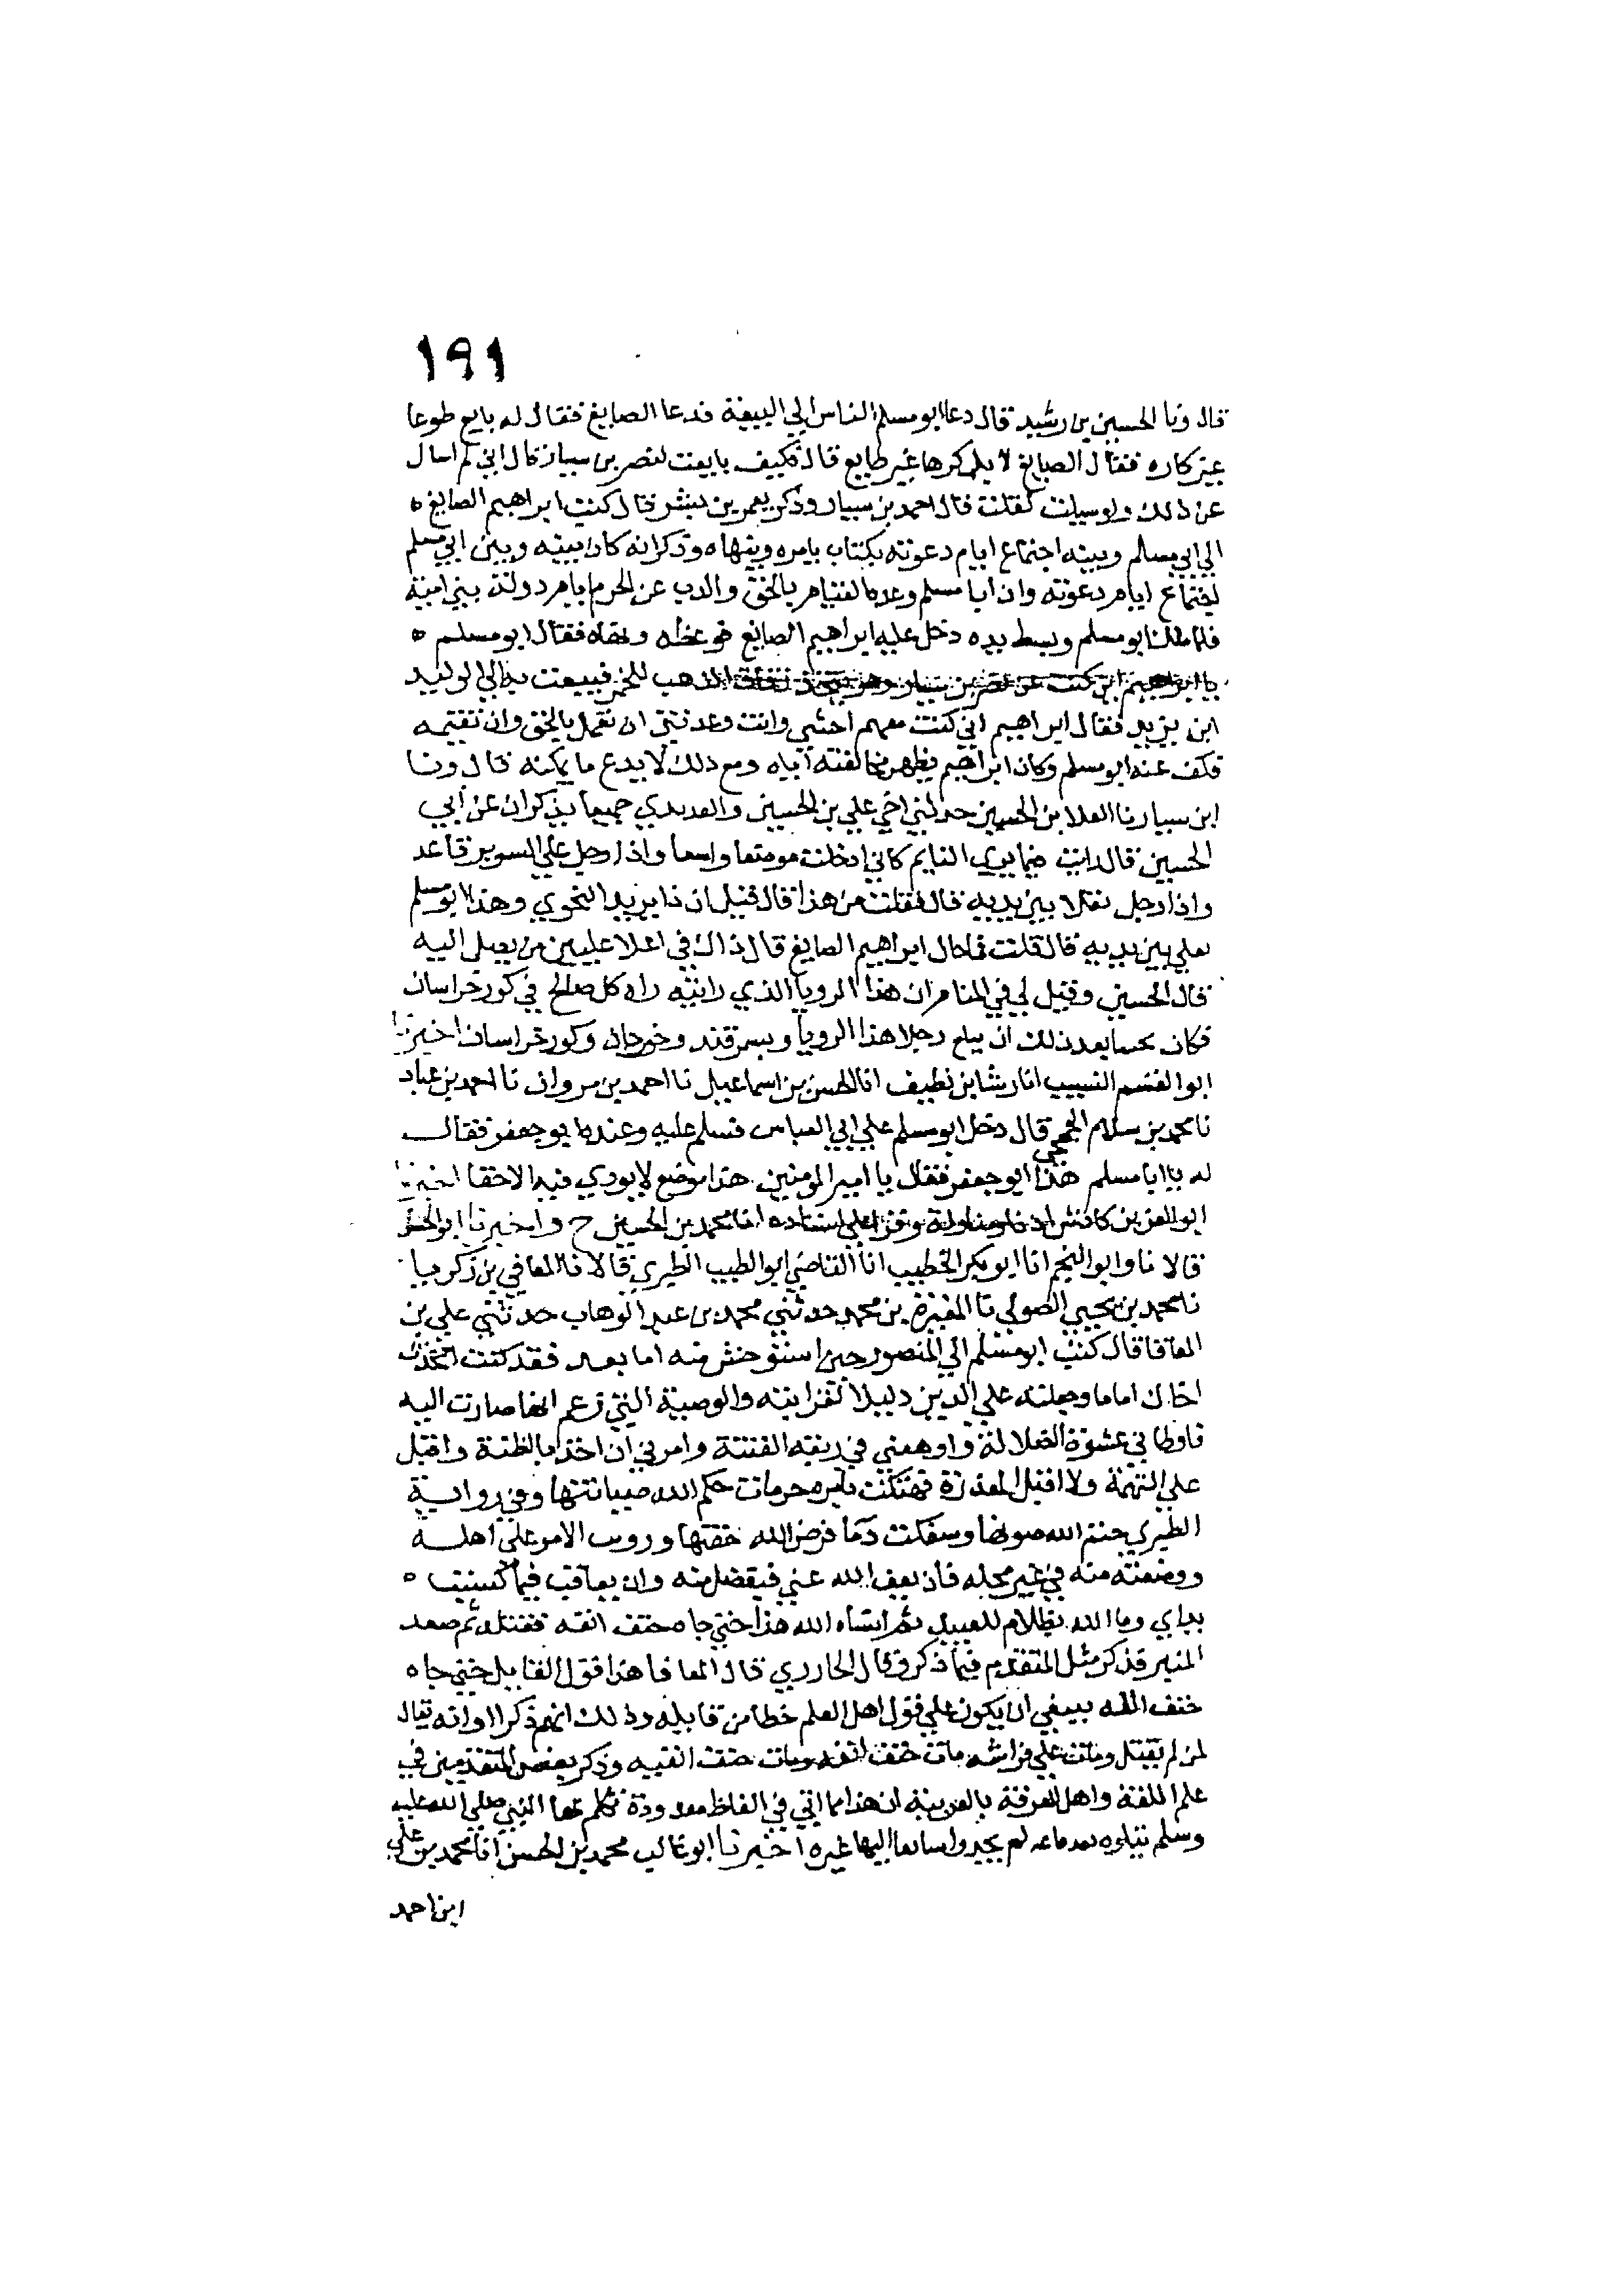 ١٩١
قال ونا الحسين بن رشيد قال دعا ابو مسلم الناس الي البيعة فدعا الصايغ فقال له بايع طوعا
غير كاره فقال الصايغ لا بل كرها غير طايع قال فكيف بايعت لنصر بن سيار قال اني لم اسال
عن ذلك ولو سيلت لقلت قال احمد بن سيار وذكر يعمر بن بشر قال كتب ابراهيم الصايغ ه
الي ابي مسلم وبينه اجتماع ايام دعوته بكتاب يامره وينهاه وذكر انه كان بينه وبين ابي مسلم
اجتماع ايام دعوته وان ابا مسلم وعده القيام بالحق والذب عن الحرم ايام دولة بني امية
فلما ملك ابو مسلم وبسط يده دخل عليه ابراهيم الصايغ فوعظه ونهاه فقال ابو مسلم ه
يا ابراهيم اين كنت عن نصر بن سيار وهو يتخذ زقاق الذهب للخمر فيبعث به الي الوليد
ابن يزيد فقال ابراهيم اني كنت معهم اخشي وانت وعدتني ان تعمل بالحق وان تقيمه
فكف عنه ابو مسلم وكان ابراهيم يظهر مخالفته اياه ومع ذلك لا يدع ما يمكنه قال ونا
ابن سيار نا العلا بن الحسين حدثني اخي علي بن الحسين جميعا يذكران عن ابي
الحسين قال رايت فيما يري النايم كاني ادخلت موضعا واسعا واذا رجل علي السرير قاعد
واذا رجل بين يديه قال فقلت من هذا قال قيل ان ذا يزيد النحوي وهذا ابو مسلم
بين يديه قال قلت فما حال ابراهيم الصايغ قال ذاك في اعلا عليين من يصل اليه
قال الحسين وقيل لي في المنام ان هذا الرويا الذي رايته راه كل صالح في كور خراسان
فكان بعد ذلك ان رجلا هذا الرويا وبسمرقند وكور خراسان اخبرنا
ابو القسم النسيب انا رشا بن نظيف انا الحسن بن اسماعيل نا احمد بن مروان نا احمد بن عباد
نا محمد بن سلام الجمحي قال دخل ابو مسلم علي ابي العباس فسلم عليه وعنده ابو جعفر فقال
له يا ابا مسلم هذا ابو جعفر فقال يا امير المومنين هذا موضع لا يودي فيه الا حقك اخبرنا
ابو العز بن كادش اذنا ومناولة وقرا علي اسناده انا محمد بن الحسين ح واخبرنا ابو الحسن
قالا نا وابو النجم انا ابو بكر الخطيب انا القاضي ابو الطيب الطبري قالا نا المعافي بن زكريا
نا محمد بن يحيي الصولي نا المغيرة بن محمد حدثني محمد بن عبد الوهاب حدثني علي بن
المعافا قال كتب ابو مسلم الي المنصور حين استوحش منه اما بعد فقد كنت اتخذت
اخاك اماما وجعلته علي الدين دليلا لقرابته والوصية التي زعم انها صارت اليه
فاوطا بي عشوة الضلالة واوهقني في ربقة الفتنة وامرني ان اخذ بالظنة واقتل
علي التهمة ولا اقبل المعذرة فهتكت بامره حرمات حكم الله صيانتها وفي رواية
الطبري حتم الله صونها وسفكت دما فرض الله حقنها وزويت الامر علي اهله
ووضعته منه في غير محله فان يعف الله عني فبفضل منه وان يعاقب فيما كسبت ه
يداي وما الله بظلام للعبيد ثم انساه الله هذا حتي جاه حتف انفه فقتله ثم صعد
المنبر فذكر مثل المتقدم فيما ذكر وقال الجازري قال المعافا هذا قول القايل حتي جاه
حتف انفه ينبغي ان يكون علي قول اهل العلم خطا من قايله وذلك انهم ذكروا انه يقال
لمن لم يقتل ومات علي فراشه مات حتف انفه ومات حتف انفيه وذكر بعض المتقدمين في
علم اللغة واهل المعرفة بالعربية ان هذا مما اتي في الفاظ معدودة تكلم بها النبي صلي الله عليه
وسلم لم يجدوا سابقا اليها غيره اخبرنا ابو غالب محمد بن الحسن انا محمد بن علي
ابن احمد